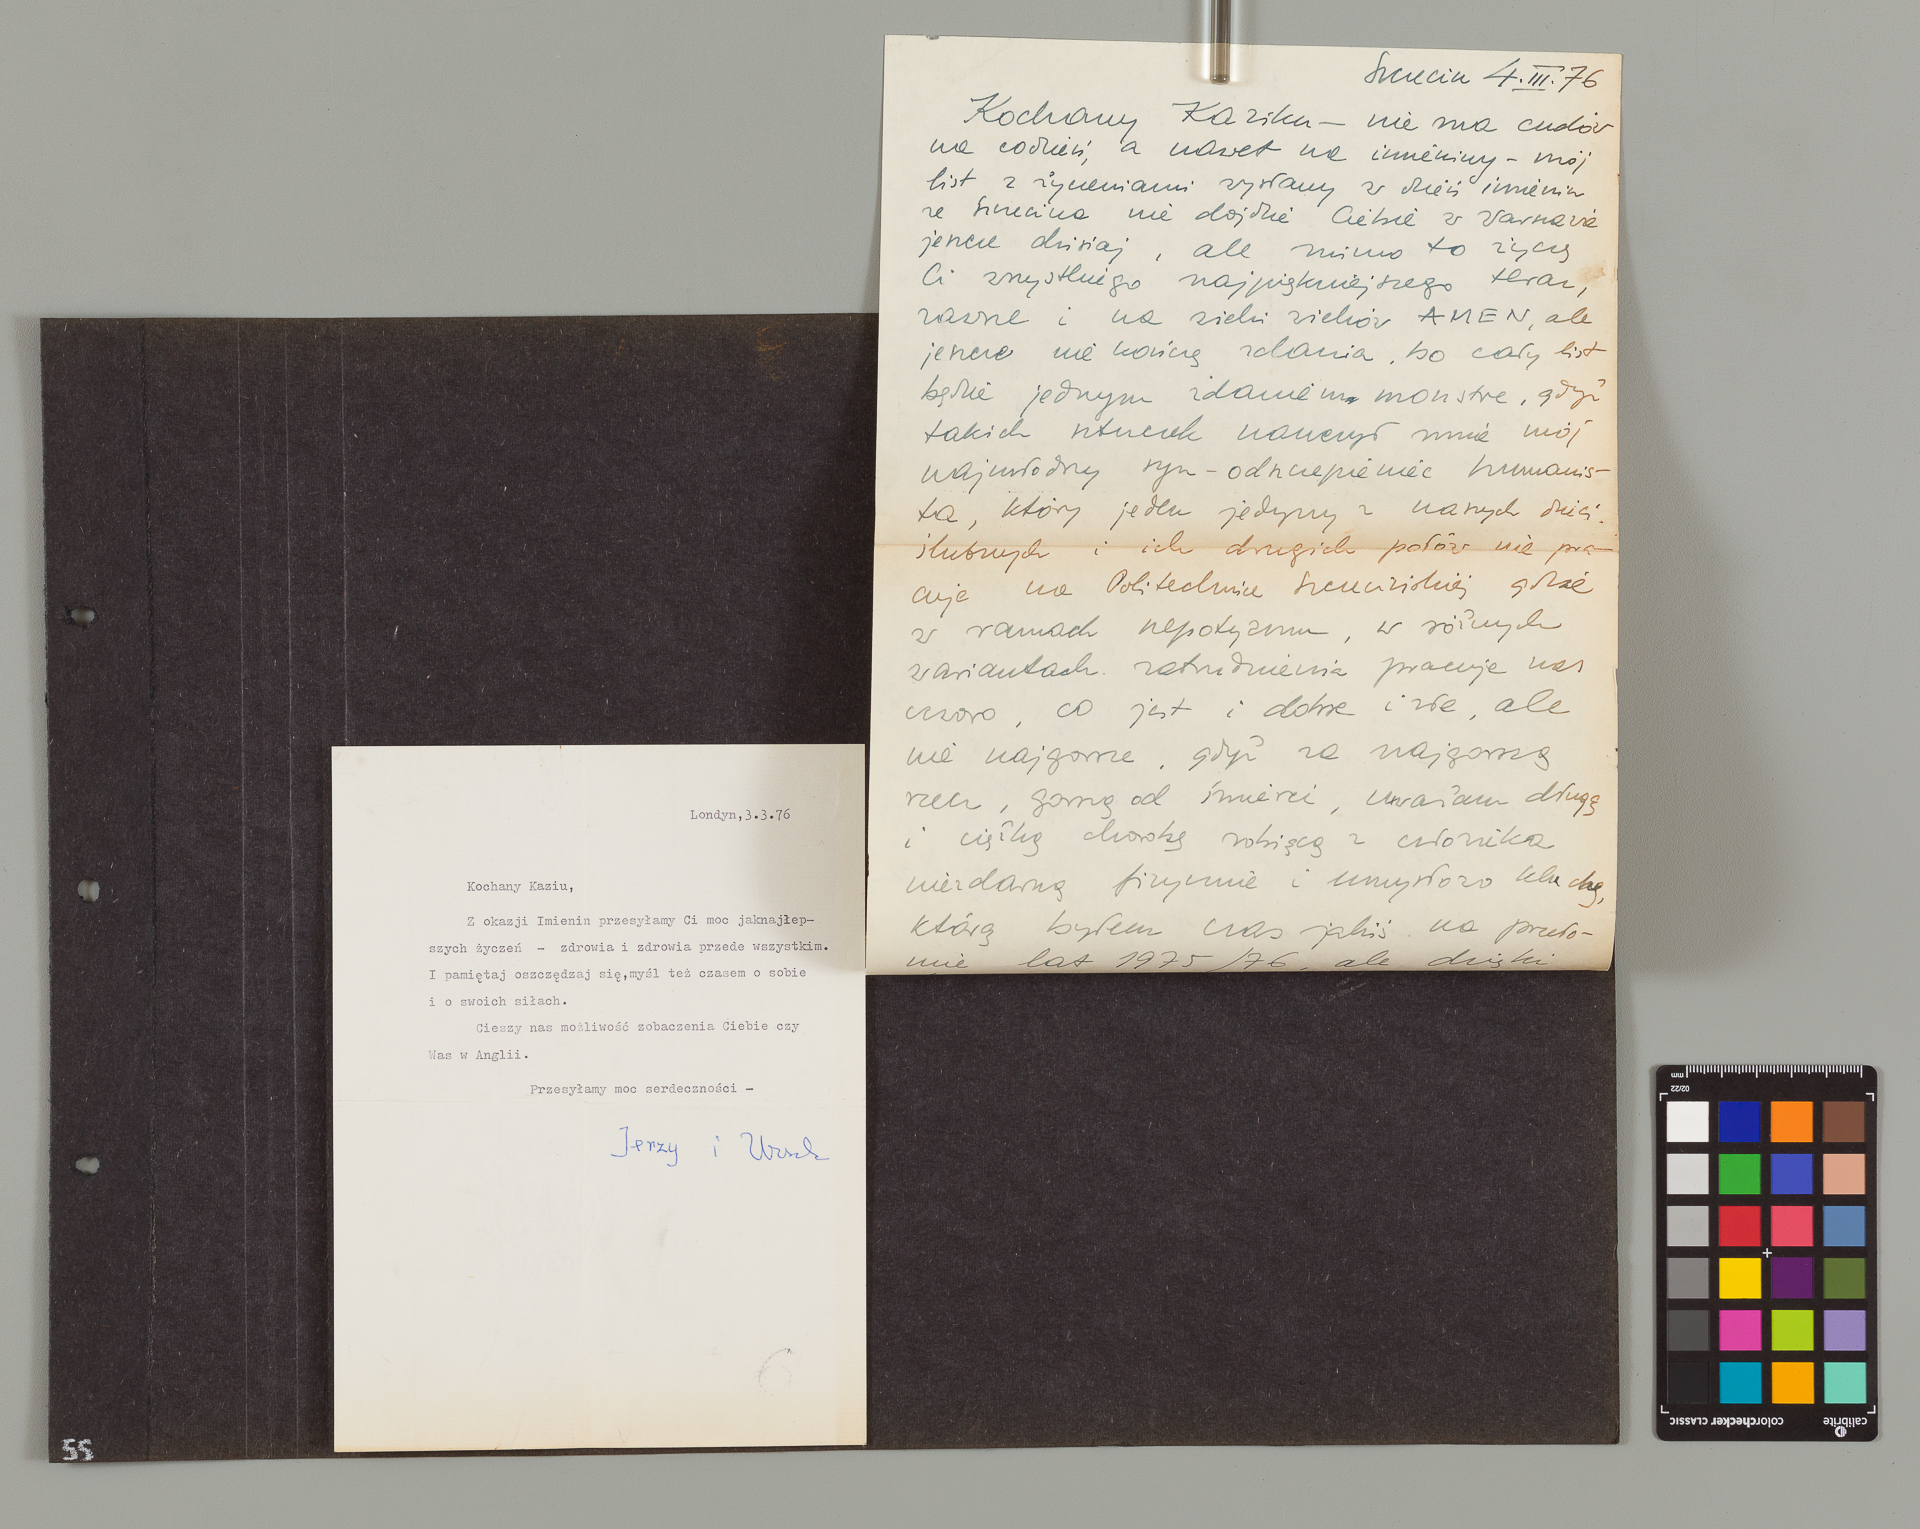 Szczecin 4.III.76
Kochany Kaziku – nie ma cudów
na codzień, a nawet na imieniny – mój
list z życzeniami wysłany w dzień imienin
ze Szczecina nie dojdzie Ciebie w Warszawie
jeszcze dzisiaj, ale mimo to życzę
Ci wszystkiego najpiękniejszego teraz,
zawsze i na wieki wieków AMEN, ale
jeszcze nie kończę zdania, bo cały list
będzie jednym zdaniem monstre, gdyż
takich sztuczek nauczył mnie mój
najmłodszy syn – odszczepieniec humanis-
ta, który jeden jedyny z naszych dzieci
ślubnych i ich drugich połów nie pra-
cuje na Politechnice Szczecińskiej gdzie
w ramach nepotyzmu, w różnych
wariantach zatrudnienia pracuje nas
czworo, co jest i dobre i złe, ale
nie najgorsze, gdyż za najgorszą
rzecz, gorszą od śmierci, uważam długą
i ciężką chorobę robiącą z człowieka
niezdarną fizycznie i umysłowo
którą byłem czas jakiś na przeło-
mie lat 1975/76, ale dzięki
Londyn,3.3.76
Kochany Kaziu,
Z okazji Imienin przesyłamy Ci moc jaknajłep-
szych życzeń – zdrowia i zdrowia przede wszystkim.
I pamiętaj oszczędzaj się,myśl też czasem o sobie
i o swoich siłach.
Cieszy nas możliwość zobaczenia Ciebie czy
Was w Anglii.
Przesyłamy moc serdeczności –
Jerzy i
55
mm
02/22
calibrite
colorchecker CLASSIC